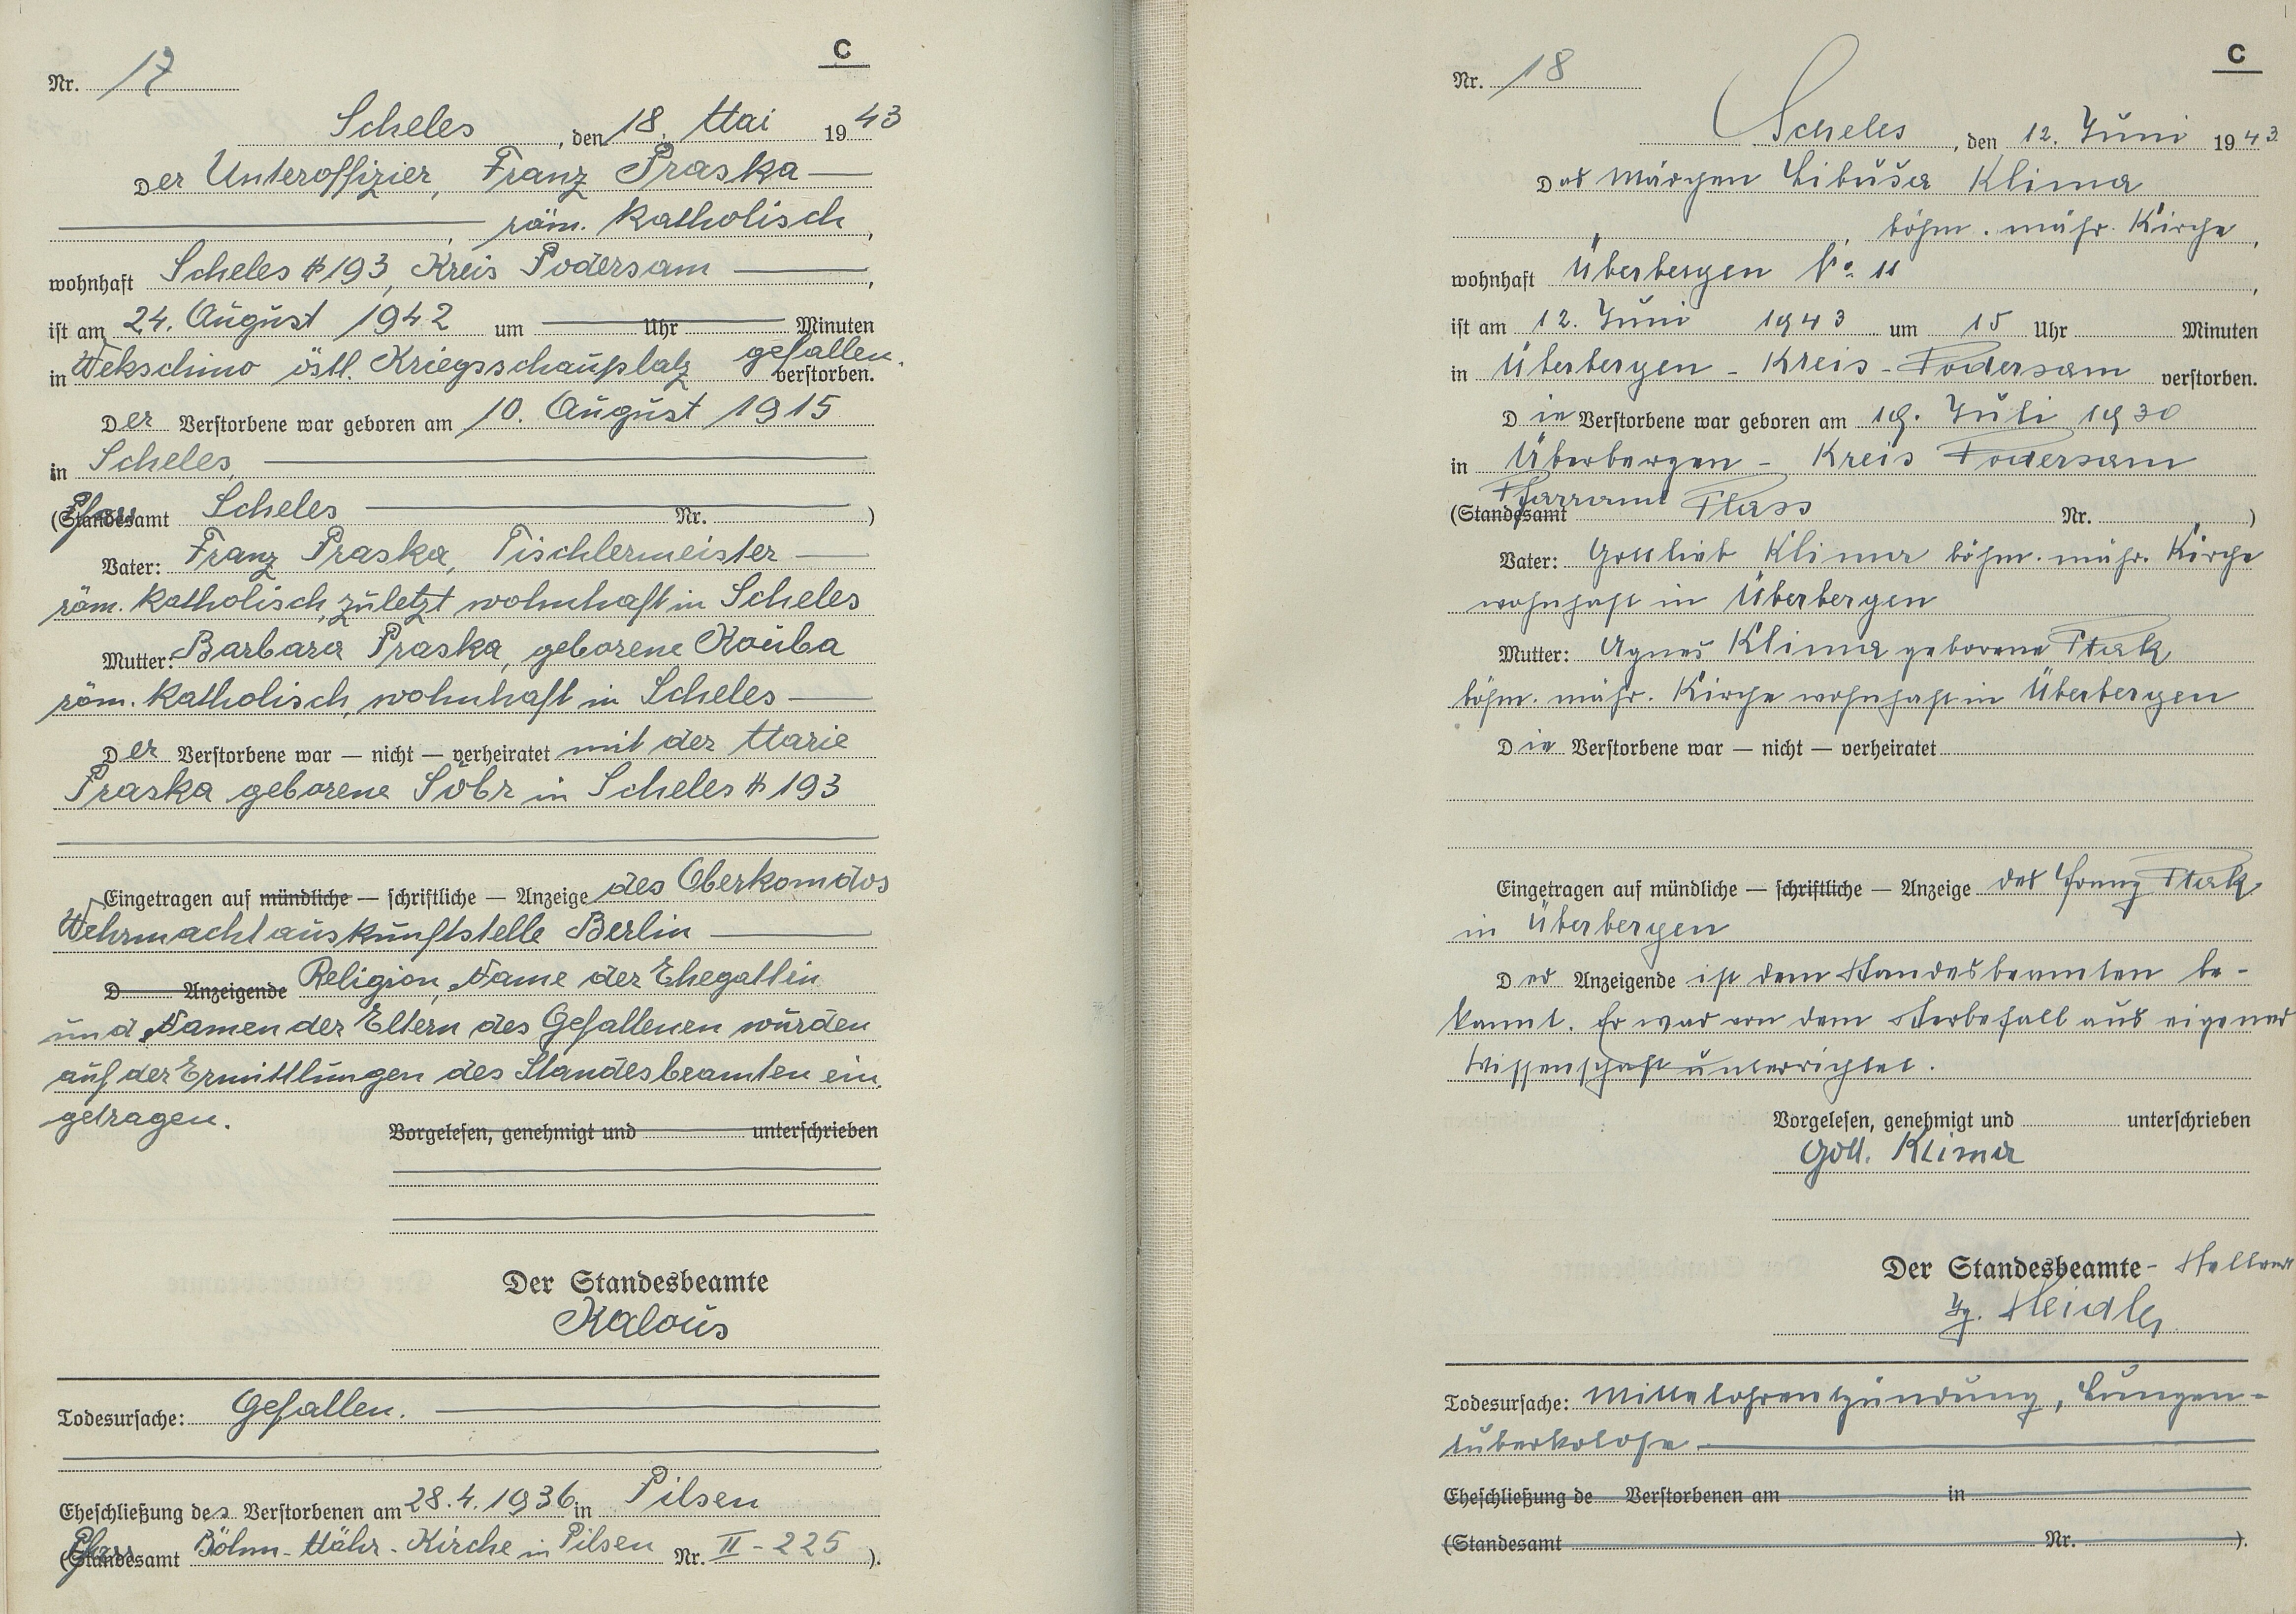 C
Nr. 17
Scheles, den 18. Mai 1943
Der Unteroffizier, Franz Praska
, röm. katholisch,
wohnhaft Scheles # 193, Kreis Podersam,
ist am 24. August 1942 um Uhr Minuten
in Wekschino östl. Kriegsschauplatz gefallen. verstorben.
Der Verstorbene war geboren am 10. August 1915
in Scheles,
(Pfarr Standesamt Scheles Nr. )
Vater: Franz Praska, Tischlermeister
röm. katholisch, zuletzt wohnhaft in Scheles
Mutter: Barbara Praska, geborene Kouba
röm. katholisch, wohnhaft in Scheles
Der Verstorbene war — nicht — verheiratet mit der Marie
Praska geborene in Scheles # 193
Eingetragen auf mündliche — schriftliche — Anzeige des Oberkomdos
Wehrmachtauskunftstelle Berlin
D Anzeigende Religion, Name der Ehegattin
und Namen der Eltern des Gefallenen wurden
auf der Ermittlungen des Standesbeamten ein
getragen.
Vorgelesen, genehmigt und unterschrieben
Der Standesbeamte
Kalous
Todesursache: Gefallen.
Eheschließung des Verstorbenen am 28.4.1936 in Pilsen
(Pfarr Standesamt Böhm-Mähr-Kirche in Pilsen Nr. II-225 ).
C
Nr. 18
Scheles, den 12. Juni 1943
Das Mädchen Libuša Klima
, böhm. mähr. Kirche,
wohnhaft Überbergen No. 11,
ist am 12. Juni 1943 um 15 Uhr Minuten
in Überbergen - Kreis - Podersam verstorben.
Die Verstorbene war geboren am 19. Juli 1930
in Überbergen - Kreis Podersam
Pfarramt Flass
(Standesamt Nr. )
Vater: Gottlieb Klima böhm. mähr. Kirche
wohnhaft in Überbergen
Mutter: Agnes Klima geborene Ptak
böhm. mähr. Kirche wohnhaft in Überbergen
Die Verstorbene war — nicht — verheiratet
Eingetragen auf mündliche — schriftliche — Anzeige des Franz Ptak
in Überbergen
Der Anzeigende ist dem Standesbeamten be-
kannt. Er war von dem Sterbefall aus eigener
Wissenschaft unterrichtet.
Vorgelesen, genehmigt und unterschrieben
Gottl. Klima
Der Standesbeamte - Stellvert
Todesursache: Mittelohrentzündung, Lungen-
tuberkolose
Eheschließung de Verstorbenen am in
(Standesamt Nr. ).